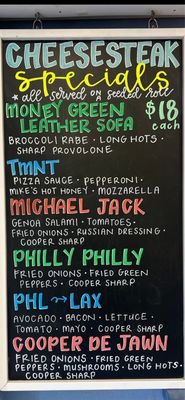 CHEESESTEAK
specials
* all served on a seeded roll
MONEY GREEN
LEATHER SOFA
$18
each
BROCCOLI RABE · LONG HOTS ·
SHARP PROVOLONE
TMNT
PIZZA SAUCE · PEPPERONI ·
MIKE'S HOT HONEY · MOZZARELLA
MICHAEL JACK
GENOA SALAMI · TOMATOES ·
FRIED ONIONS · RUSSIAN DRESSING ·
COOPER SHARP
PHILLY PHILLY
FRIED ONIONS · FRIED GREEN
PEPPERS · COOPER SHARP
PHL → LAX
AVOCADO · BACON · LETTUCE ·
TOMATO · MAYO · COOPER SHARP
COOPER DE JAWN
FRIED ONIONS · FRIED GREEN
PEPPERS · MUSHROOMS · LONG HOTS ·
COOPER SHARP